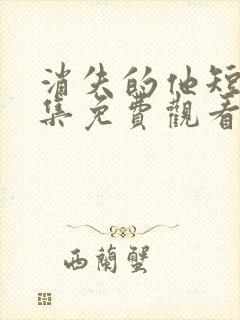 消失的他短
集免費觀看
西蘭蟹